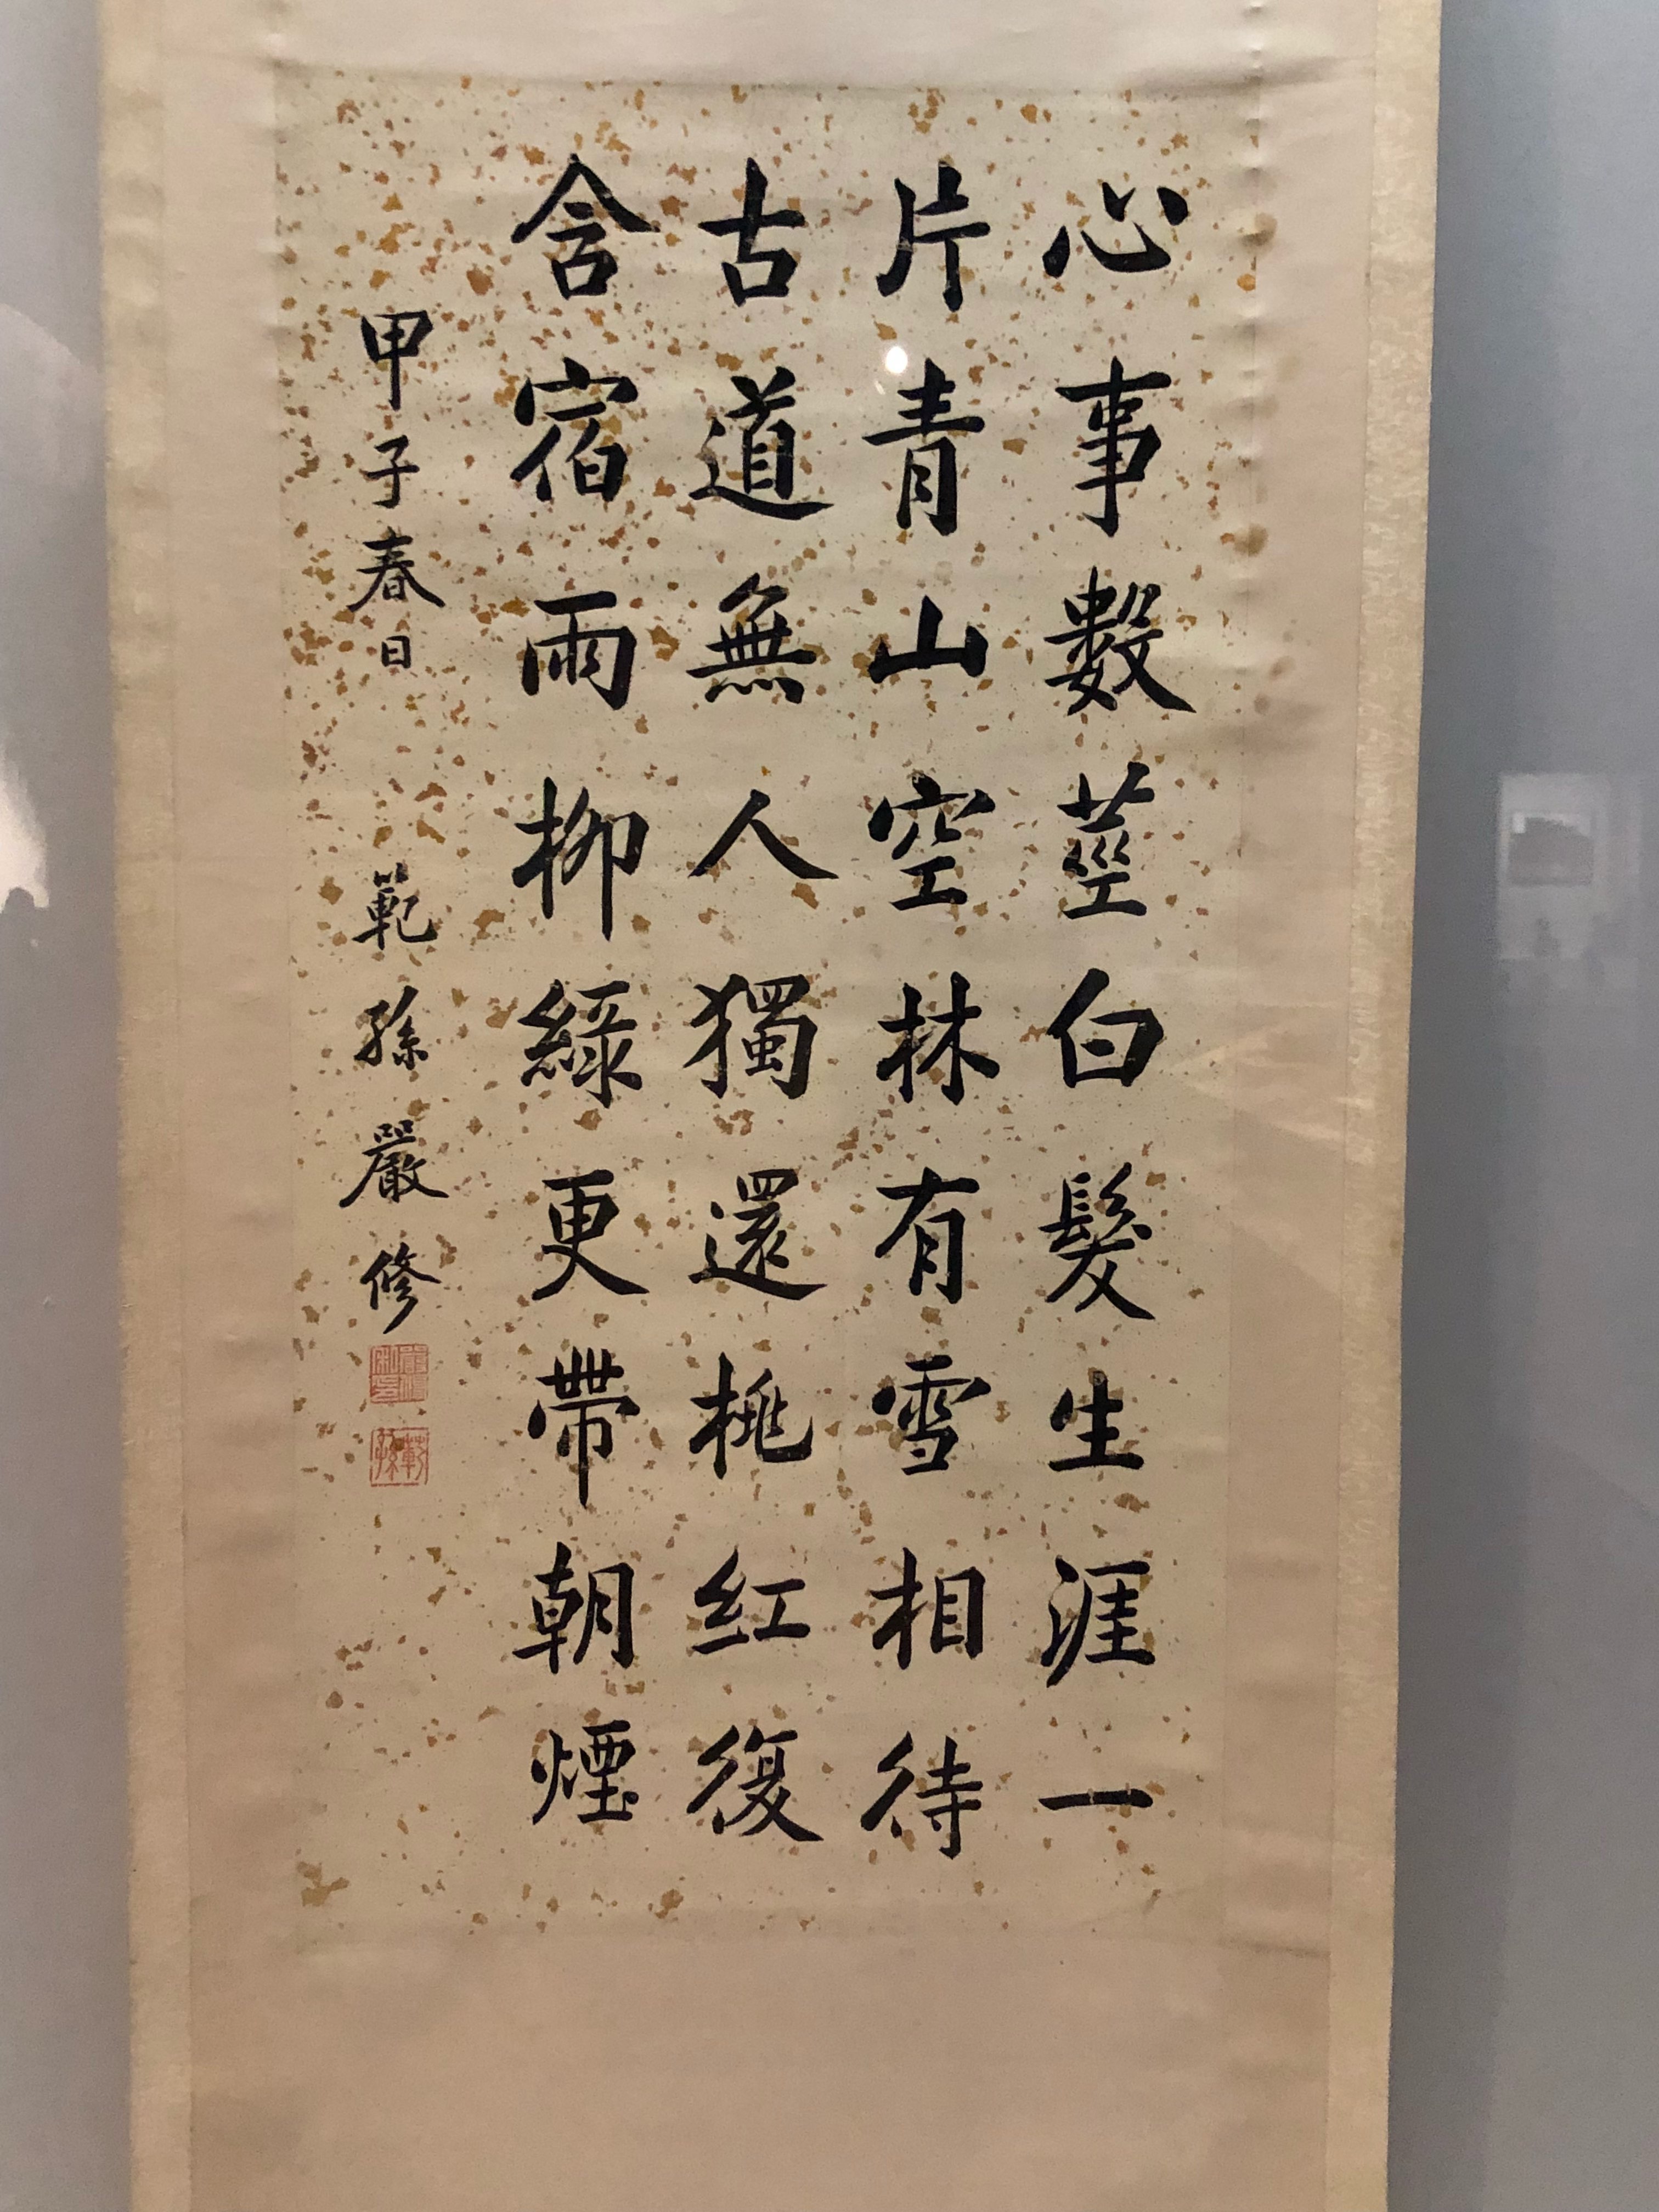 心事數莖白髮生涯一
片青山空林有雪相待
古道無人獨還桃紅復
含宿雨柳綠更帶朝煙
甲子春日 範孫嚴修